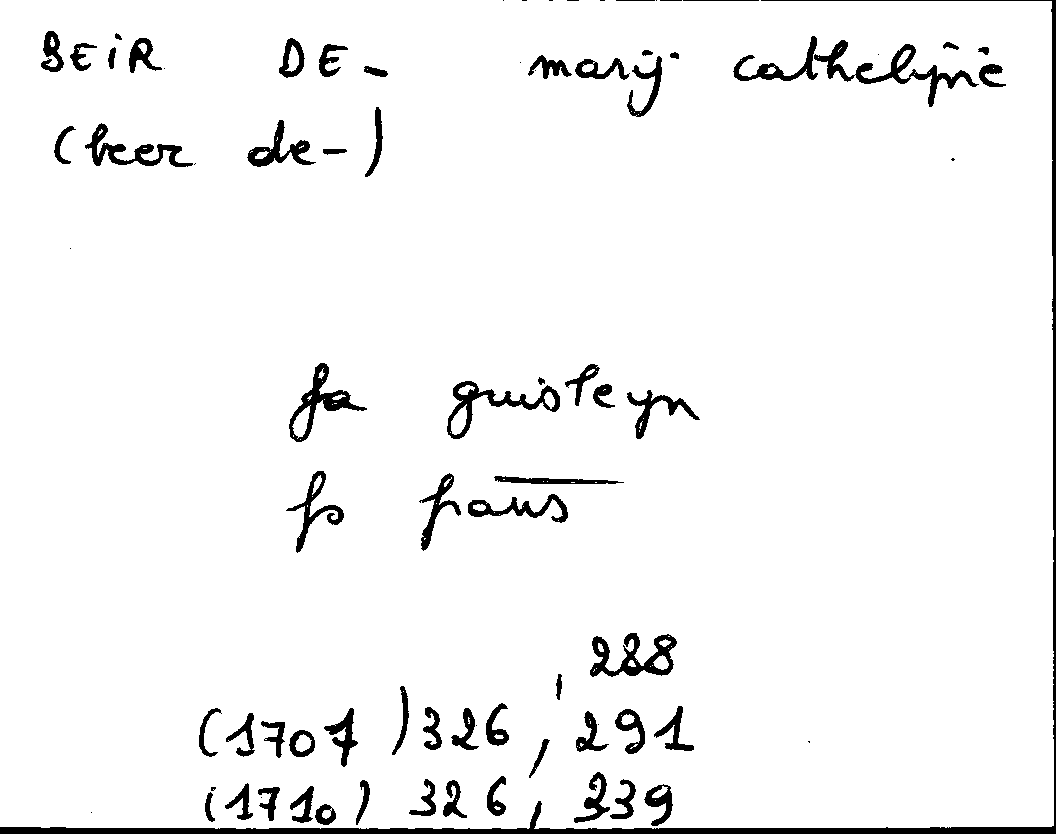 BEIR DE- marij cathelijne
(beer de-)
fa guisleyn
fs frans
, 288
(1707) 326, 291
(1710) 326, 339